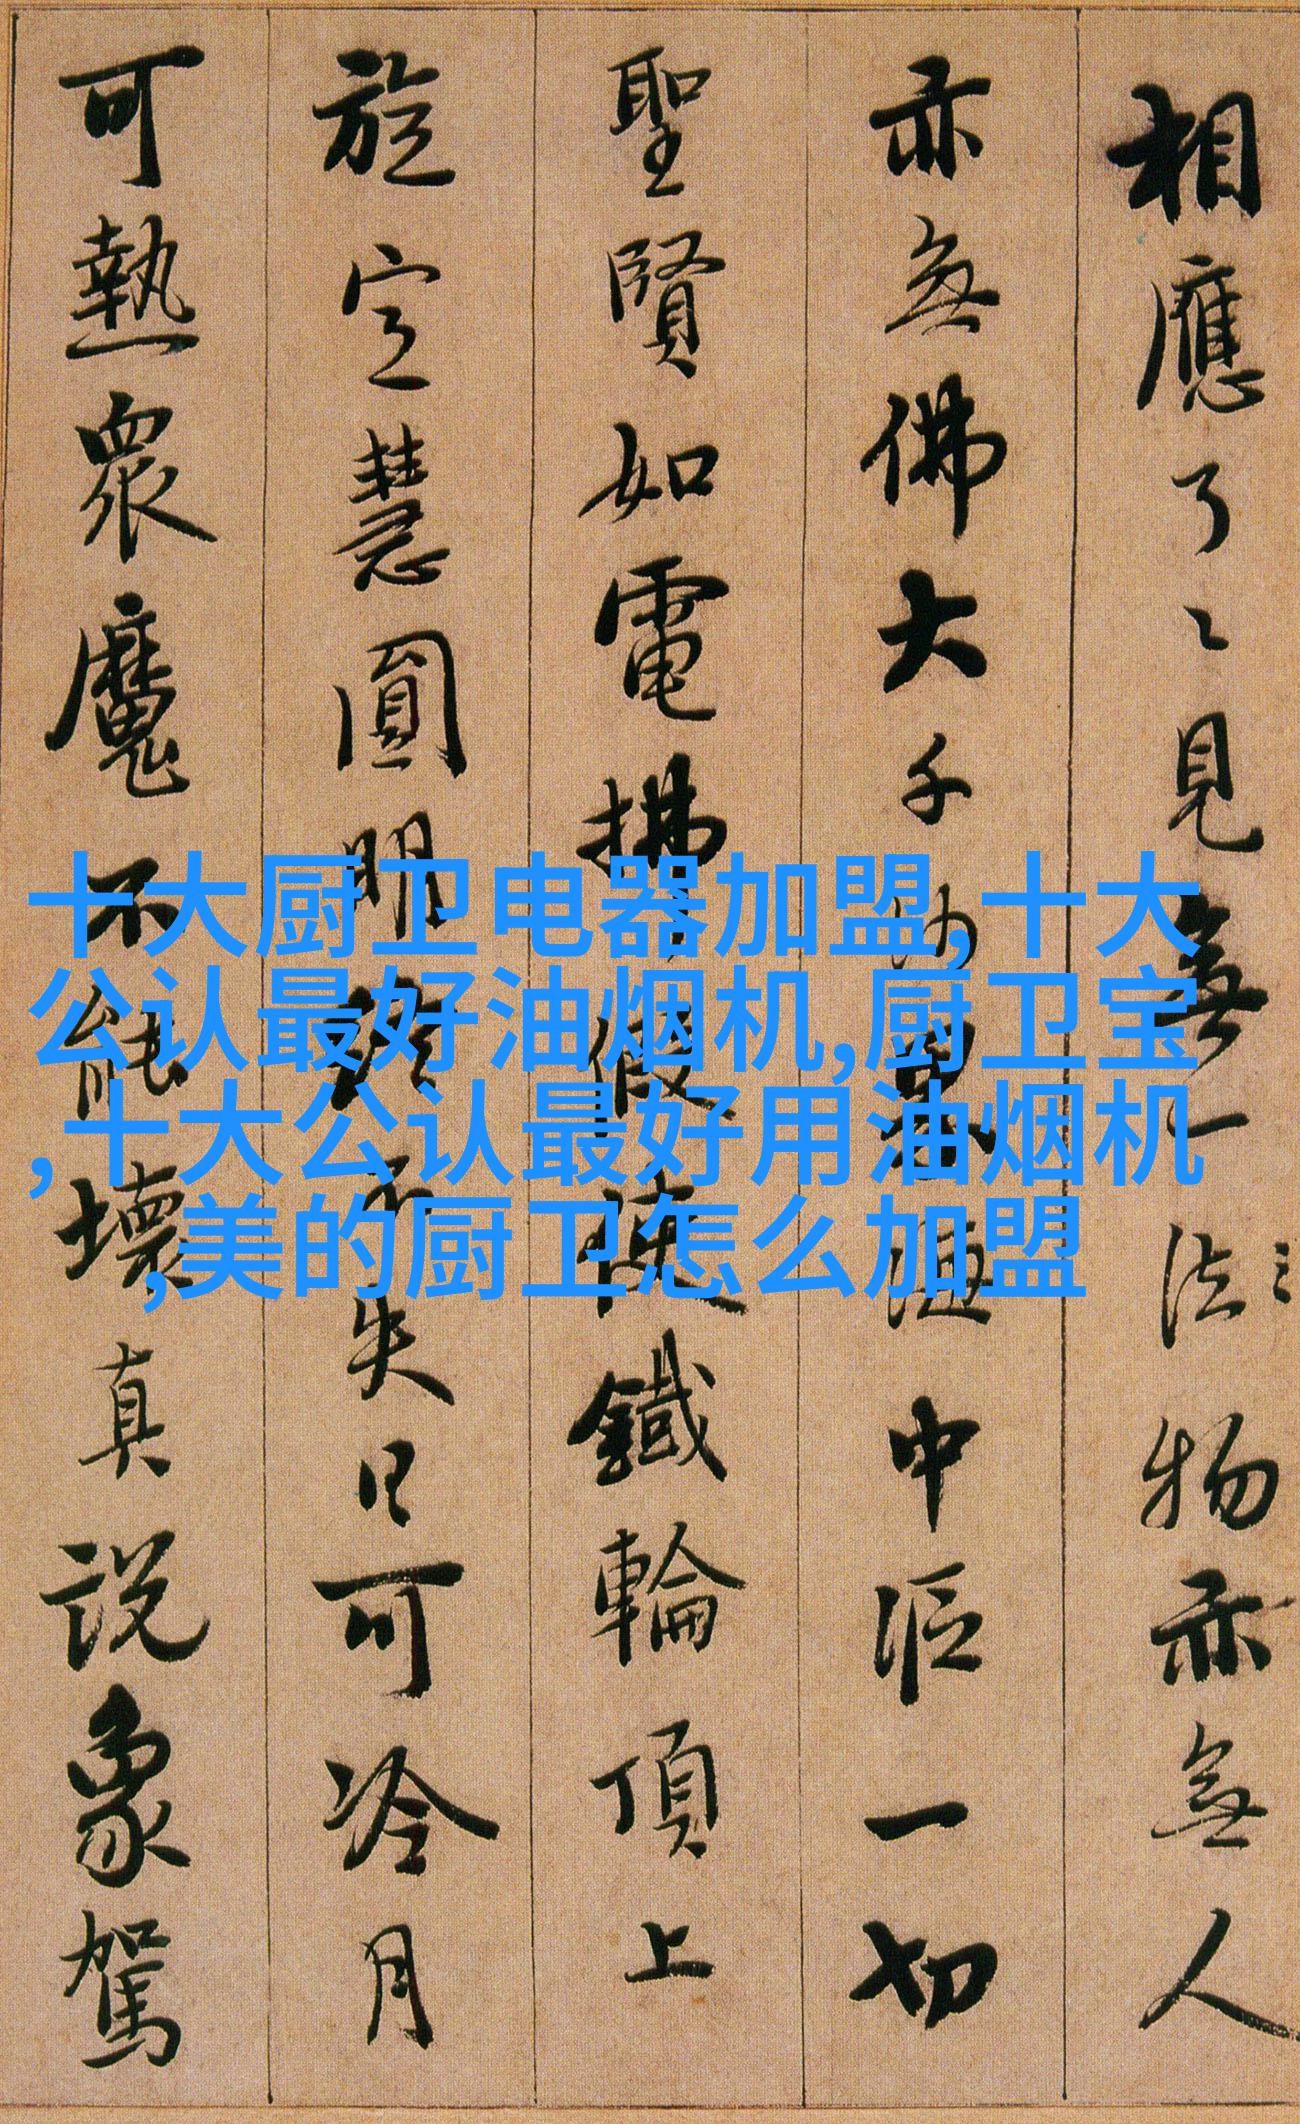 相應了〻見無一法物亦無人
亦無佛大千沙界海中漚一切
聖賢如電拂假使鐵輪頂上
旋定慧圓明終不失日可冷月
可熱衆魔不能壞真說象駕
十大厨卫电器加盟,十大
公认最好油烟机,厨卫宝
,十大公认最好用油烟机
,美的厨卫怎么加盟